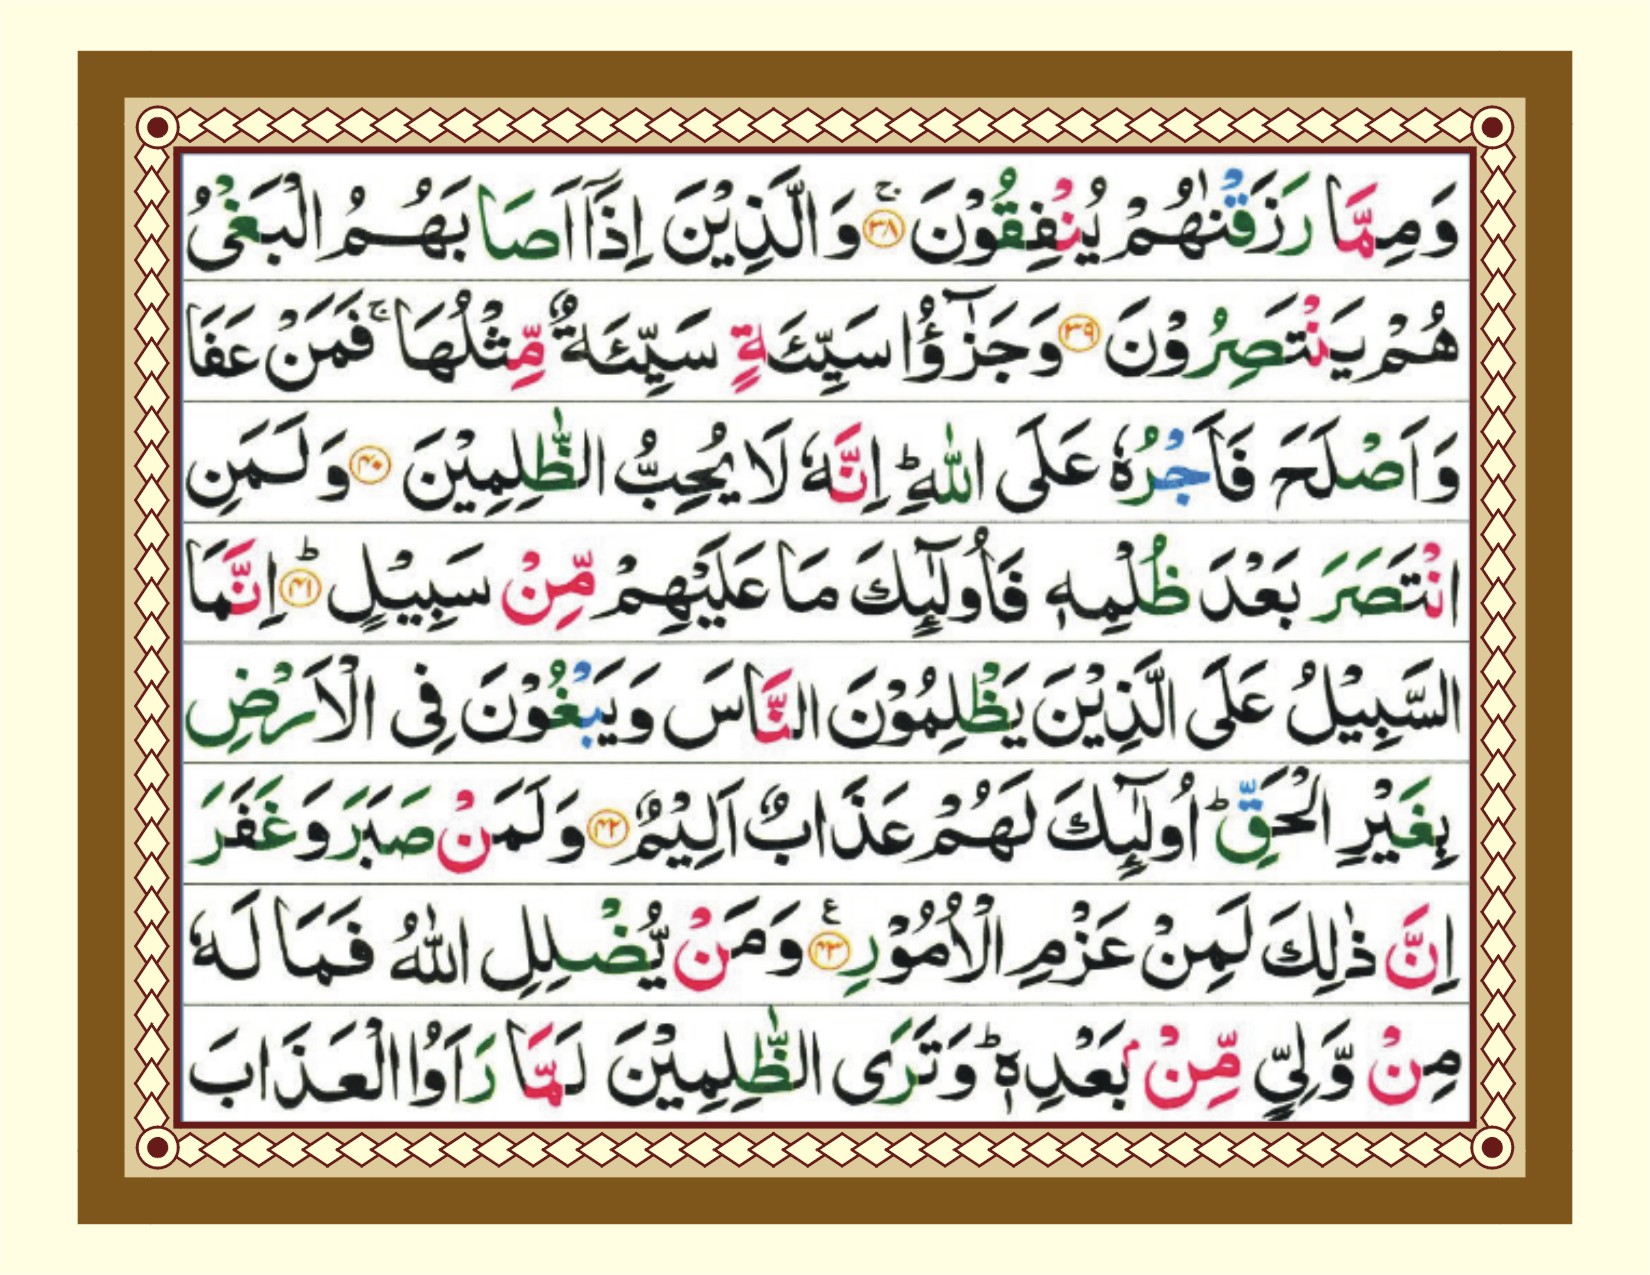 وَمِمَّا رَزَقْنٰهُمْ يُنْفِقُوْنَ ۚ ﴿۳۸﴾ وَالَّذِيْنَ اِذَاۤ اَصَابَهُمُ الْبَغْيُ
هُمْ يَنْتَصِرُوْنَ ﴿۳۹﴾ وَجَزٰٓؤُا سَيِّئَةٍ سَيِّئَةٌ مِّثْلُهَا ۚ فَمَنْ عَفَا
وَاَصْلَحَ فَاَجْرُهٗ عَلَى اللّٰهِ ؕ اِنَّهٗ لَا يُحِبُّ الظّٰلِمِيْنَ ﴿۴۰﴾ وَلَمَنِ
انْتَصَرَ بَعْدَ ظُلْمِهٖ فَاُولٰٓئِكَ مَا عَلَيْهِمْ مِّنْ سَبِيْلٍ ؕ ﴿۴۱﴾ اِنَّمَا
السَّبِيْلُ عَلَى الَّذِيْنَ يَظْلِمُوْنَ النَّاسَ وَيَبْغُوْنَ فِى الْاَرْضِ
بِغَيْرِ الْحَقِّ ؕ اُولٰٓئِكَ لَهُمْ عَذَابٌ اَلِيْمٌ ﴿۴۲﴾ وَلَمَنْ صَبَرَ وَغَفَرَ
اِنَّ ذٰلِكَ لَمِنْ عَزْمِ الْاُمُوْرِ ﴿۴۳﴾ ع وَمَنْ يُّضْلِلِ اللّٰهُ فَمَا لَهٗ
مِنْ وَّلِيٍّ مِّنْۢ بَعْدِهٖ ؕ وَتَرَى الظّٰلِمِيْنَ لَمَّا رَاَوُا الْعَذَابَ